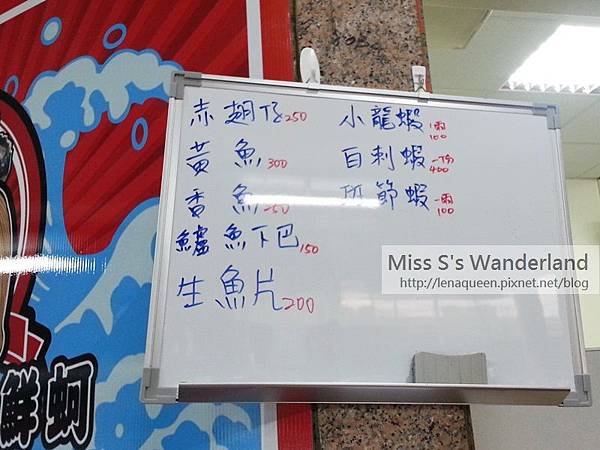 赤翅仔250
黄魚300
香魚250
鱸魚下巴150
生魚片200
小龍蝦一兩100
自刺蝦一份400
斑節蝦一兩100
鮮蚵
Miss S's Wanderland
http://lenaqueen.pixnet.net/blog